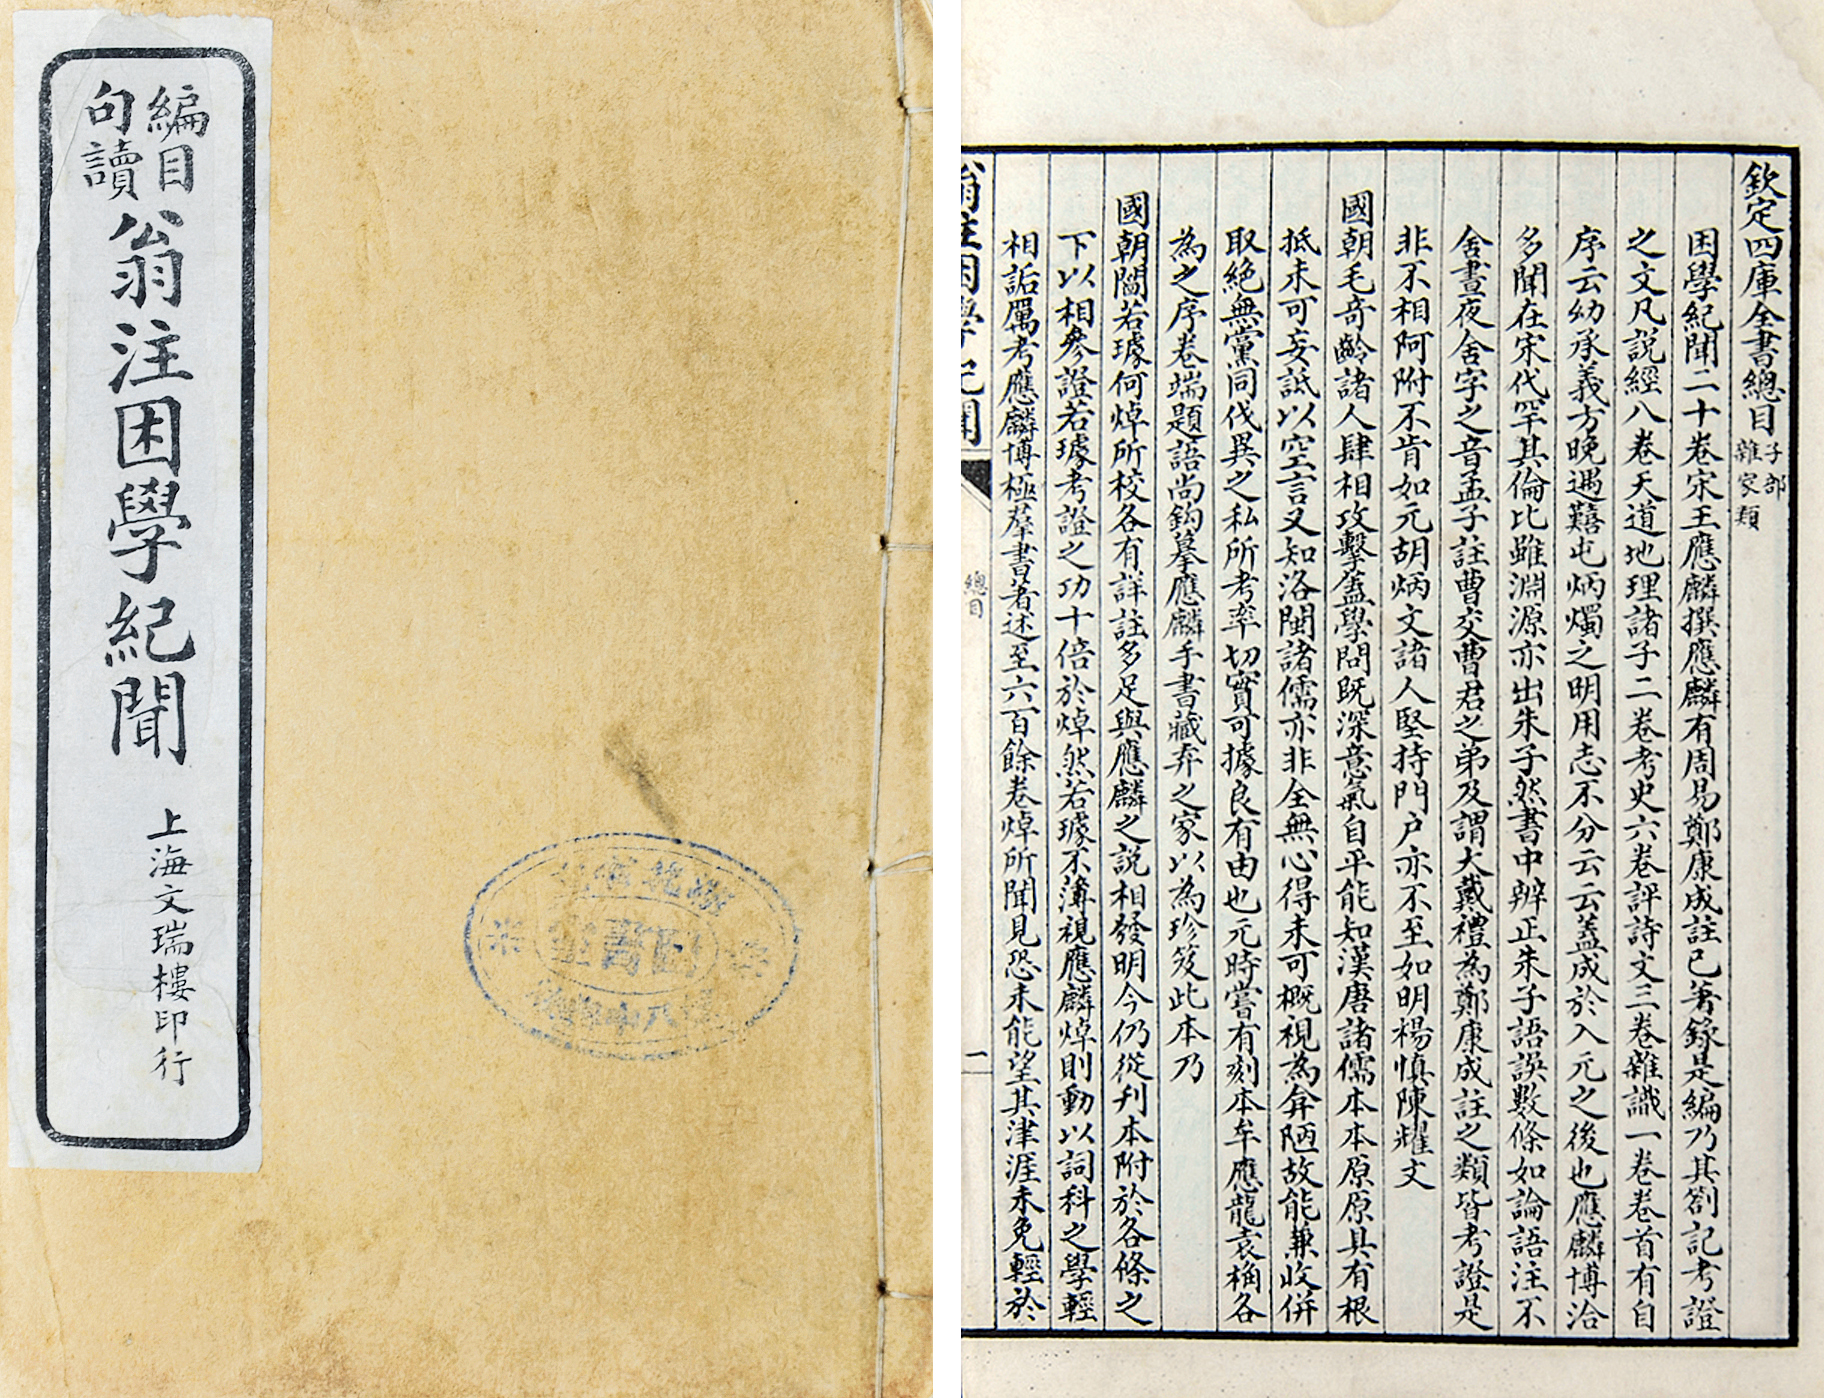 編目
句讀
翁注困學紀聞
上海文瑞樓印行
欽定四庫全書總目
子部
雜家類
困學紀聞二十卷宋王應麟撰應麟有周易鄭康成註已著錄是編乃其劄記考證
之文凡說經八卷天道地理諸子二卷考史六卷評詩文三卷雜識一卷卷首有自
序云幼承義方晚遇囏屯炳燭之明用志不分云云蓋成於入元之後也應麟博洽
多聞在宋代罕其倫比雖淵源亦出朱子然書中辨正朱子語誤數條如論語注不
舍晝夜舍字之音孟子註曹交曹君之弟及謂大戴禮為鄭康成註之類皆考證是
非不相阿附不肯如元胡炳文諸人堅持門戶亦不至如明楊慎陳耀文
國朝毛奇齡諸人肆相攻擊蓋學問既深意氣自平能知漢唐諸儒本本原原具有根
抵未可妄詆以空言又知洛閩諸儒亦非全無心得未可概視為弇陋故能兼收併
取絕無黨同伐異之私所考率切實可據良有由也元時嘗有刻本牟應龍袁桷各
為之序卷端題語尚鈎摹應麟手書藏弆之家以為珍笈此本乃
國朝閻若璩何焯所校各有詳註多足與應麟之說相發明今仍從刊本附於各條之
下以相參證若璩考證之功十倍於焯然若璩不薄視應麟焯則動以詞科之學輕
相詬厲考應麟博極羣書著述至六百餘卷焯所聞見恐未能望其津涯未免輕於
翁注困學紀聞
總目
一